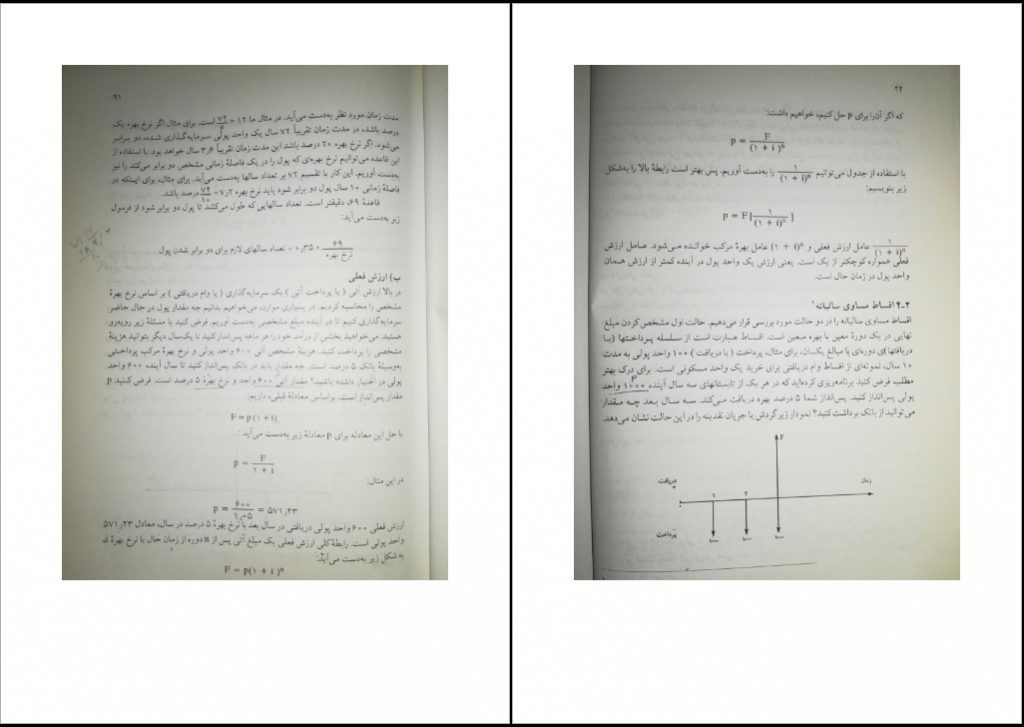 ۲۱
مدت زمان مورد نظر به‌دست می‌آید. در مثال ما ۱۲ = ۷۲ است. برای مثال اگر نرخ بهره یک
درصد باشد، در مدت زمان تقریباً ۷۲ سال یک واحد پولی سرمایه‌گذاری شده، دو برابر
می‌شود. اگر نرخ بهره ۲۰ درصد باشد این مدت زمان تقریباً ۳٫۶ سال خواهد بود. با استفاده از
این قاعده می‌توانیم نرخ بهره‌ای که پول را در یک فاصلهٔ زمانی مشخص دو برابر می‌کند را نیز
به‌دست آوریم. این کار با تقسیم ۷۲ بر تعداد سالها به‌دست می‌آید. برای مثال، برای اینکه در
فاصلهٔ زمانی ۱۰ سال پول دو برابر شود باید نرخ بهره ۷٫۲ = ۷۲/۱۰ درصد باشد.
قاعدهٔ ۶۹، دقیقتر است. تعداد سالهایی که طول می‌کشد تا پول دو برابر شود از فرمول
زیر به‌دست می‌آید:
۶۹/نرخ بهره + ۰٫۳۵ = تعداد سالهای لازم برای دو برابر شدن پول
ب) ارزش فعلی
در بالا ارزش آتی ( یا پرداخت آتی ) یک سرمایه‌گذاری ( یا وام دریافتی ) بر اساس نرخ بهرهٔ
مشخص را محاسبه کردیم. در بسیاری موارد، می‌خواهیم بدانیم چه مقدار پول در حال حاضر
سرمایه‌گذاری کنیم تا در آینده مبلغ مشخصی به‌دست آوریم. فرض کنید با مسئلهٔ زیر روبه‌رو
هستید: می‌خواهید بخشی از درآمد خود را هر ماهه پس‌انداز کنید تا یک‌سال دیگر بتوانید هزینهٔ
مشخصی را پرداخت کنید. هزینهٔ مشخص آتی ۶۰۰ واحد پولی و نرخ بهرهٔ مرکب پرداختی
به‌وسیلهٔ بانک ۵ درصد است. چه مقدار باید در بانک پس‌انداز کنید تا سال آینده ۶۰۰ واحد
پولی در اختیار داشته باشید؟ مقدار آتی ۶۰۰ واحد و نرخ بهرهٔ ۵ درصد است. فرض کنید p
مقدار پس‌انداز است. براساس معادلهٔ قبلی، داریم:
F = p(۱ + i)
با حل این معادله برای p معادلهٔ زیر به‌دست می‌آید :
p = F/(۱ + i)
در این مثال:
p = ۶۰۰/۱٫۰۵ = ۵۷۱٫۲۳
ارزش فعلی ۶۰۰ واحد پولی دریافتی در سال بعد با نرخ بهرهٔ ۵ درصد در سال، معادل ۵۷۱٫۲۳
واحد پولی است. رابطهٔ کلی ارزش فعلی یک مبلغ آتی پس از n دوره از زمان حال با نرخ بهرهٔ i،
به شکل زیر به‌دست می‌آید:
F = p(۱ + i)ⁿ
۲۲
که اگر آن‌را برای p حل کنیم، خواهیم داشت:
p = F/(۱ + i)ⁿ
با استفاده از جدول می‌توانیم ۱/(۱ + i)ⁿ را به‌دست آوریم. پس بهتر است رابطهٔ بالا را به‌شکل
زیر بنویسیم:
p = F[۱/(۱ + i)ⁿ]
۱/(۱ + i)ⁿ عامل ارزش فعلی و (۱ + i)ⁿ عامل بهرهٔ مرکب خوانده می‌شود. عامل ارزش
فعلی همواره کوچکتر از یک است. یعنی ارزش یک واحد پول در آینده کمتر از ارزش همان
واحد پول در زمان حال است.
۲-۴ اقساط مساوی سالیانه ۱
اقساط مساوی سالیانه را در دو حالت مورد بررسی قرار می‌دهیم. حالت اول مشخص کردن مبلغ
نهایی در یک دورهٔ معین با بهره معین است. اقساط عبارت است از سلسله پرداختها (یا
دریافتها)ی دوره‌ای با مبالغ یکسان. برای مثال، پرداخت (یا دریافت) ۱۰۰ واحد پولی به مدت
۱۰ سال، نمونه‌ای از اقساط وام دریافتی برای خرید یک واحد مسکونی است. برای درک بهتر
مطلب فرض کنید برنامه‌ریزی کرده‌اید که در هر یک از تابستانهای سه سال آینده ۱۰۰۰ واحد
پولی پس‌انداز کنید. پس‌انداز شما ۵ درصد بهره دریافت می‌کند. سه سال بعد چه مقدار
می‌توانید از بانک برداشت کنید؟ نمودار زیر گردش یا جریان نقدینه را در این حالت نشان می‌دهد.
F
دریافت
زمان
۱ ۲
پرداخت
۱۰۰۰ ۱۰۰۰ ۱۰۰۰